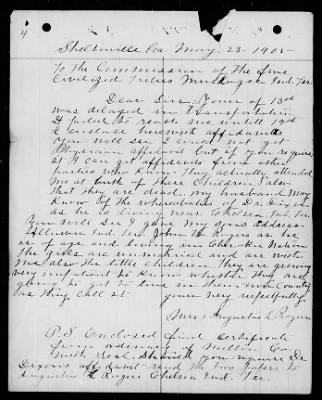 4
Sheltonville Ga. May 23 - 1905
To The Commission of The five
Civilized Tribes Muskogee Ind. Ter.
Dear Sirs. Yours of 13th
was delayed in transportation
It failed to reach me untill 19th
I enclose herewith affidavits
You will see I could not get
Physician affidavit but if you require
it I can get affidavits from other
parties who know they actually attended
me at birth of These Children also
that they are dead. my husband may
know of the whereabouts of Dr Dixon
as he is living near Chelsea Ind. Ter.
You will see I gave my sons address
John H Rogers as he
is of age and living in Cherokee Nation
The girls are unmarried and are with
me also the little children they are growing
very impatient to know whether they are
going to get to live in their own Country
as they call it.
yours very respectfully
Mrs Augustus L Rogers
P.S. Enclosed find certificate
from ordinary of Milton Co.
with seal. Should you require Dr
Dixons affidavit send the papers to
Augustus L Rogers Chelsea Ind. Ter.